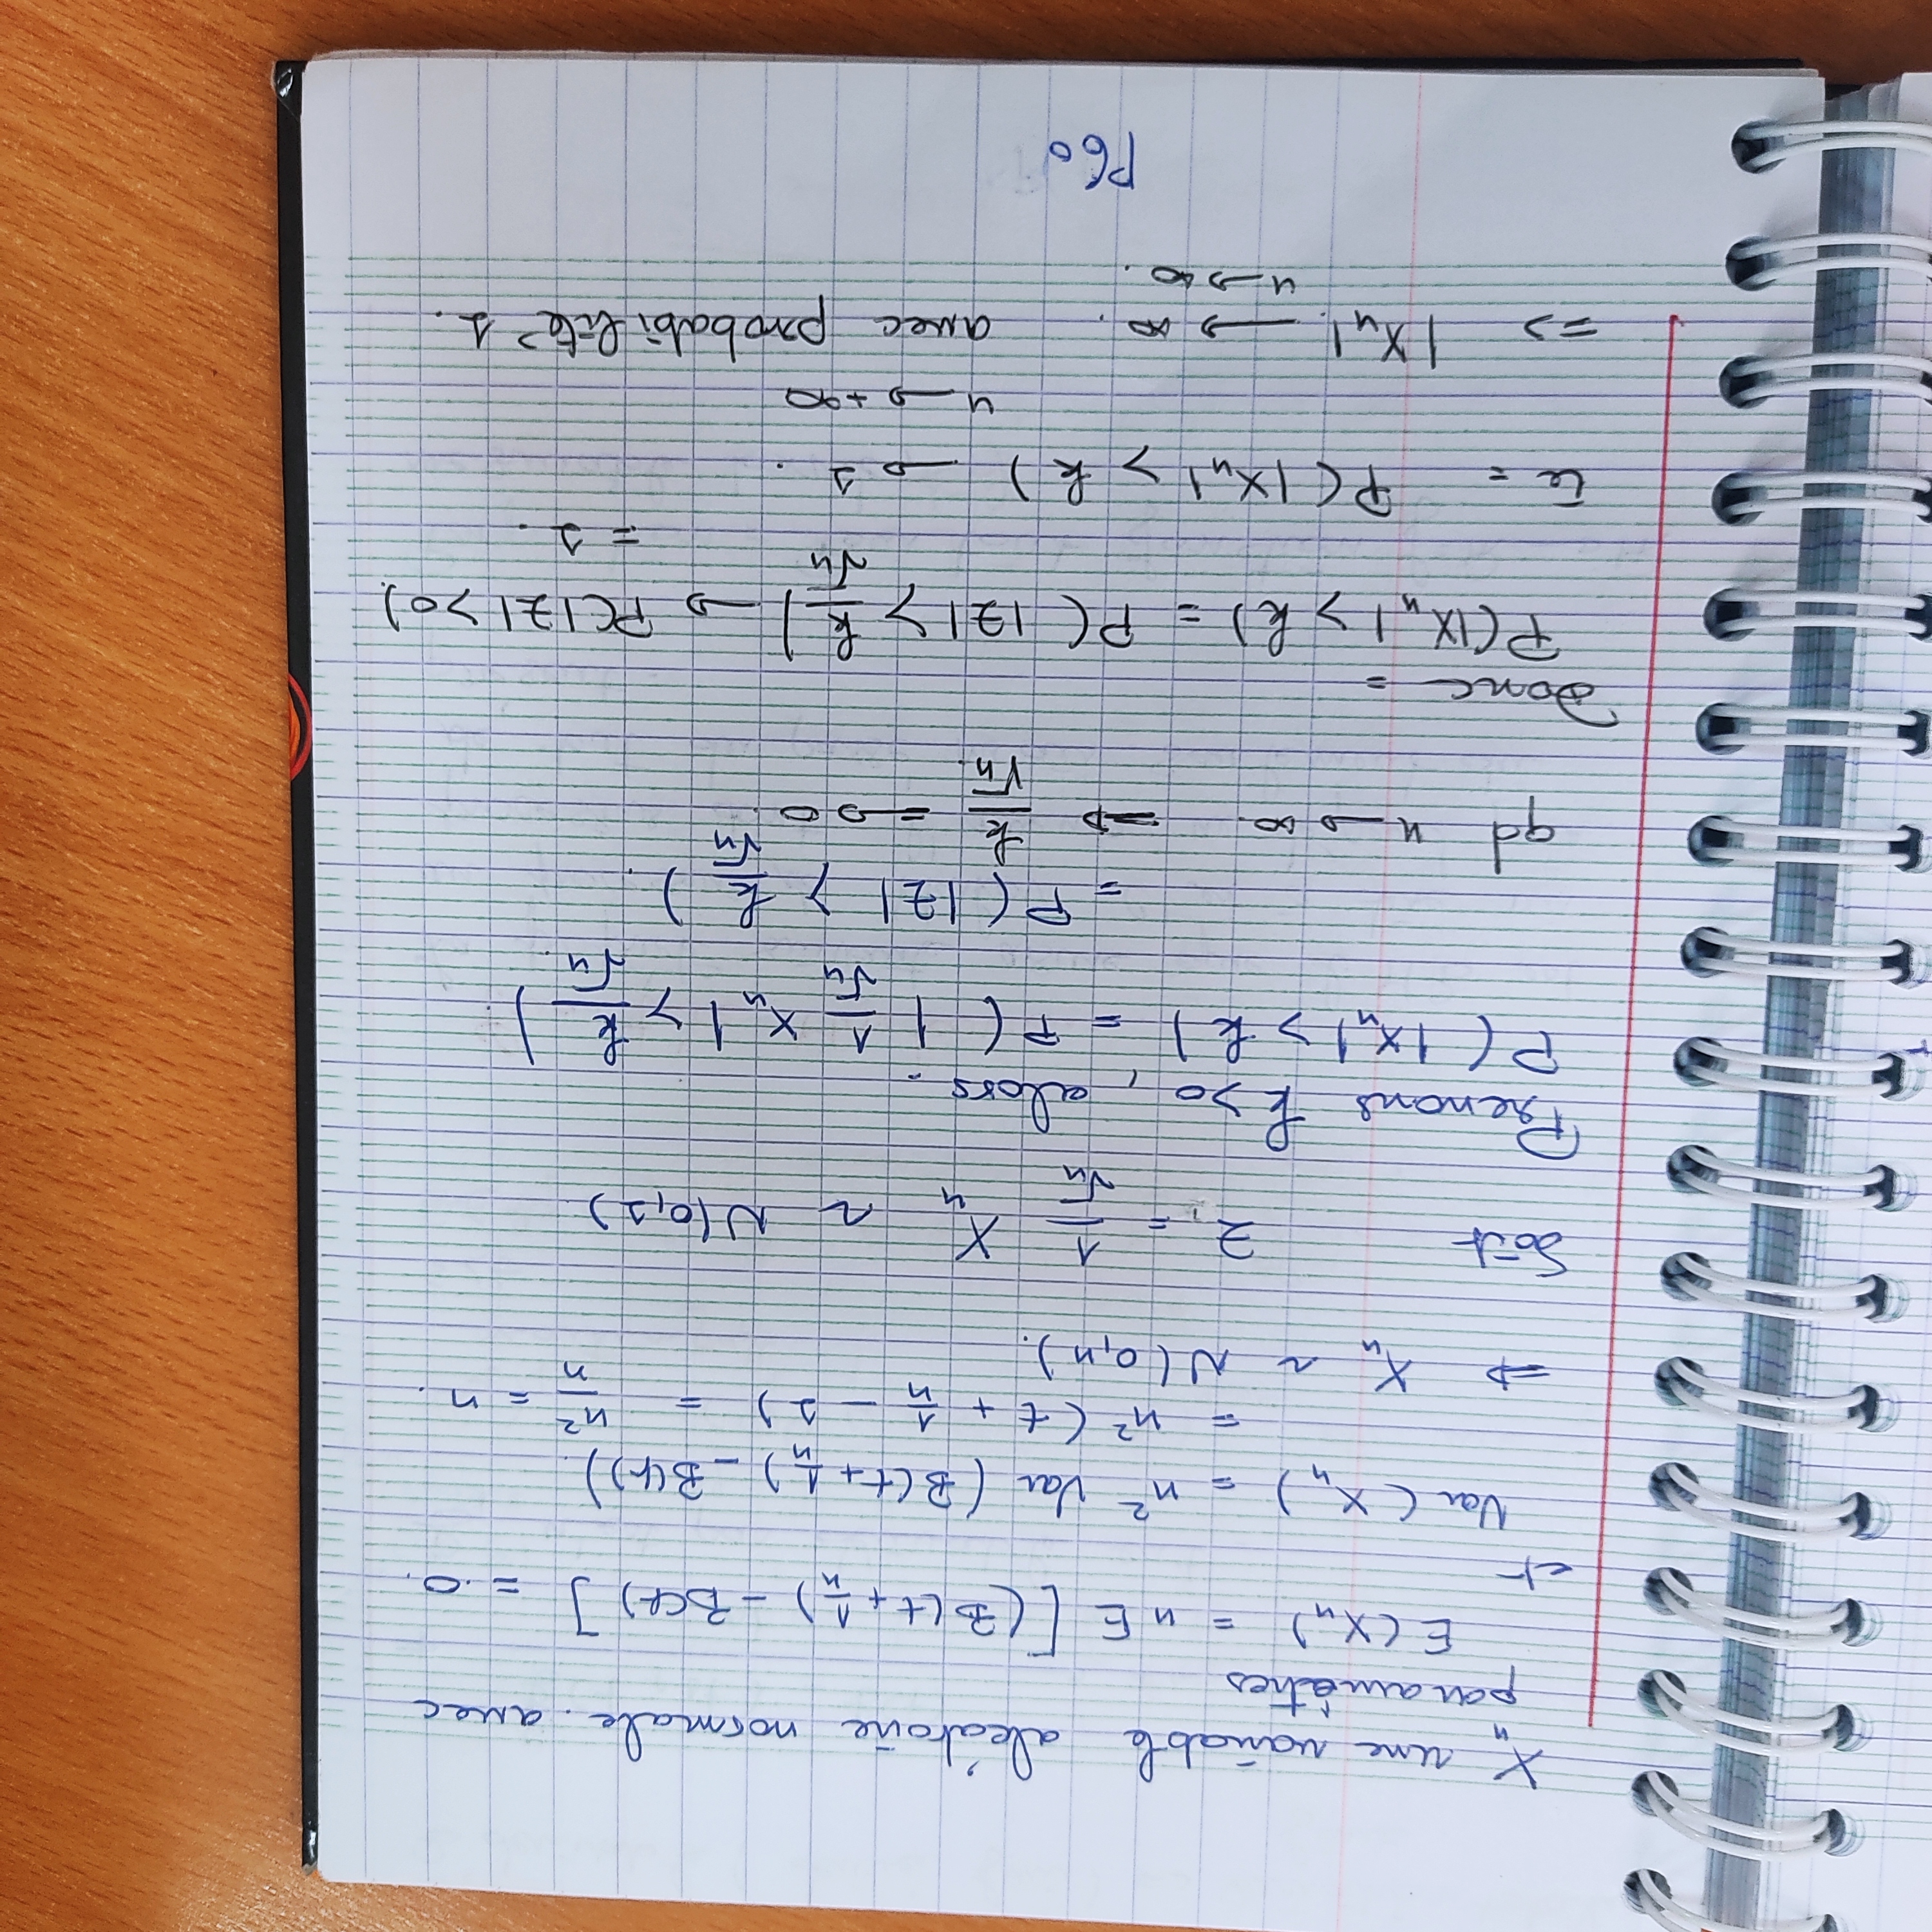 X_n une variable aléatoire normale. avec
paramètres
E(X_n) = n E [(B(t + 1/n) - B(t)] = 0.
et
Var(X_n) = n² Var (B(t + 1/n) - B(t)).
= n² (t + 1/n - 1) = n²/n = n.
=> X_n ~ N(0,n).
Soit Z = 1/√n X_n ~ N(0,1)
Prenons k>0, alors.
P(|X_n| > k) = P(|1/√n X_n| > k/√n).
= P(|Z| > k/√n).
qd n → ∞ => k/√n => 0.
Donc =
P(|X_n| > k) = P(|Z| > k/√n) → P(|Z| > 0).
= 1.
ie = P(|X_n| > k) → 1.
n → +∞
=> |X_n| → ∞. avec probabilité 1.
n → ∞.
P60